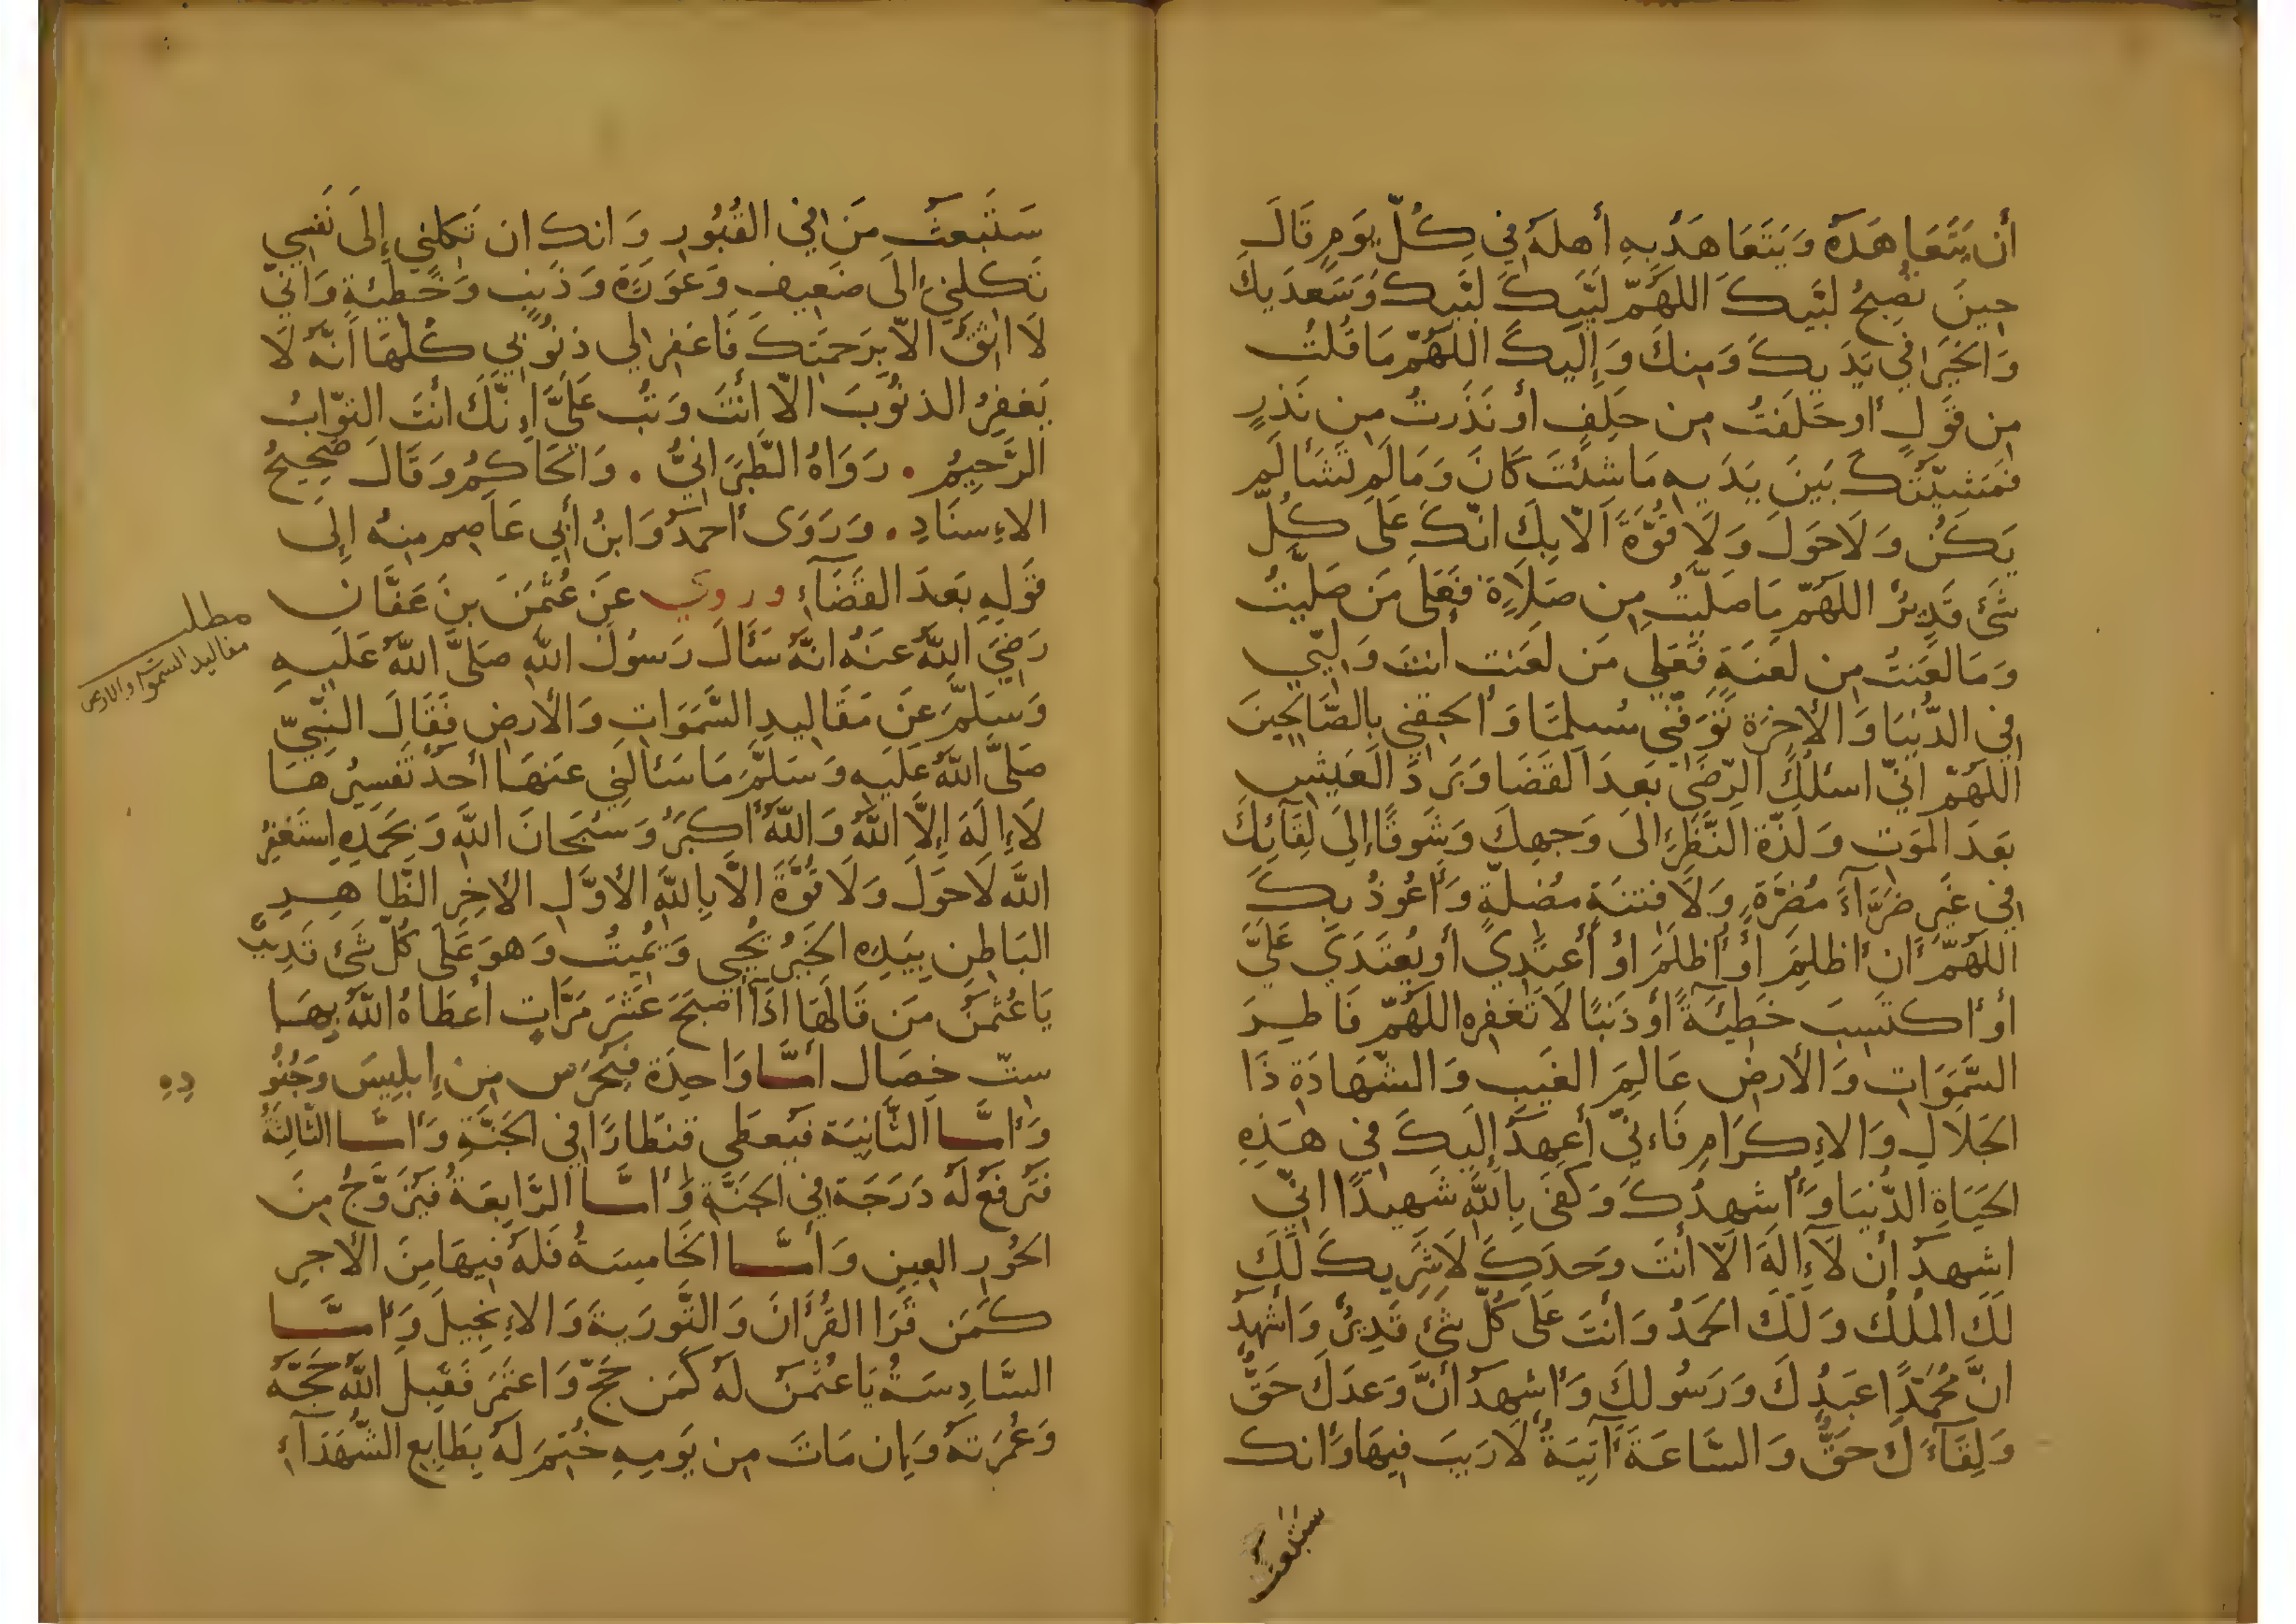 أن يَتَعَاهَدَهُ وَيَتَعَاهَدُ بِهِ أهلَهُ فِي كُلِّ يَومٍ قَالَ
حِينَ تُصبِحُ لَبَّيكَ اللَّهُمَّ لَبَّيكَ لَبَّيكَ وَسَعدَيكَ
وَالخَيرُ فِي يَدَيكَ وَمِنكَ وَإِلَيكَ اللَّهُمَّ مَا قُلتُ
مِن قَولٍ أو حَلَفتُ مِن حَلِفٍ أو نَذَرتُ مِن نَذرٍ
فَمَشِيَّتُكَ بَينَ يَدَيهِ مَا شِئتَ كَانَ وَمَا لَم تَشَأ لَم
يَكُن وَلَا حَولَ وَلَا قُوَّةَ الَّا بِكَ انَّكَ عَلَى كُلِّ
شَئٍ قَدِيرٌ اللَّهُمَّ مَا صَلَّيتُ مِن صَلَاةٍ فَعَلَى مَن صَلَّيتُ
وَمَا لَعَنتُ مِن لَعنَةٍ فَعَلَى مَن لَعَنت انتَ وَلِيِّي
فِي الدُّنيَا وَالأخِرَةِ تَوَفَّنِي مُسلِمًا وَألحِقنِي بِالصَّالِحِينَ
اللَّهُمَّ انِّي اسئلُكَ الرِّضَى بَعدَ القَضَا وَبَردَ العَيشِ
بَعدَ المَوتِ وَلَذَّةَ النَّظَرِ الَى وَجهِكَ وَشَوقًا إِلَى لِقَآئِكَ
فِي غَيرِ ضَرَّآءَ مُضِرَّةٍ وَلَا فِتنَةٍ مُضِلَّةٍ وَأعُوذُ بِكَ
اللَّهُمَّ ان أظلِمَ أو أُظلَمَ أو أعتَدِي أو يُعتَدَي عَلَيَّ
أو أكتَسِبَ خَطِيئَةً أو ذَنبًا لَا تَغفِره اللَّهُمَّ فَاطِرَ
السَّمَوَاتِ وَالأرضِ عَالِمَ الغَيبِ وَالشَّهَادَةِ ذَا
الجَلَالِ وَالإِكرَامِ فَاءنِّي أعهَدُ إِلَيكَ فِي هَذِهِ
الحَيَاةِ الدُّنيَا وَأُشهِدُكَ وَكَفَى بِاللَّهِ شَهِيدًا انِّي
اشهَدُ أن لَآ إِلَهَ الَّا أنتَ وَحدَكَ لَا شَرِيكَ لَكَ
لَكَ المُلكُ وَلَكَ الحَمدُ وَأنتَ عَلَى كُلِّ شَئٍ قَدِيرٌ وَأشهَدُ
انَّ مُحَمَّدًا عَبدُكَ وَرَسُولُكَ وَأشهَدُ أنَّ وَعدَكَ حَقٌّ
وَلِقَآءَكَ حَقٌّ وَالسَّاعَةَ آتِيَةٌ لَا رَيبَ فِيهَا وَانك
ستبعث
سَتَبعَثُ مَن فِي القُبُورِ وَانك ان تَكِلنِي إِلَى نَفسِي
تَكِلنِي إِلَى ضَعِيفٍ وَعَورَةٍ وَذَنبٍ وَخَطِيئَةٍ وَانِّي
لَا اثِقُ الَّا بِرَحمَتِكَ فَاغفِر لِي ذُنُوبِي كُلَّهَا انَّهُ لَا
يَغفِرُ الذُنُوبَ الَّا أنتَ وَتُب عَلَيَّ إِنَّكَ أنتَ التوَّابُ
الرَّحِيمُ . رَوَاهُ الطَّبَرَانِيُّ . وَالحَاكِمُ وَقَالَ صَحِيحُ
الإِسنَادِ . وَرَوَى أحمَدُ وَابنُ أبِي عَاصِمٍ مِنهُ إِلَى
قَولِهِ بَعدَ القَضَآءِ وروي عَن عُثمَنَ بنِ عَفَّانٍ
رَضِيَ اللَّهُ عَنهُ انَّهُ سَأَلَ رَسُولَ اللَّهِ صَلَّى اللَّهُ عَلَيهِ
وَسَلَّمَ عَن مَقَالِيدِ السَّمَوَاتِ وَالأرضِ فَقَالَ النَّبِيُّ
صَلَّى اللَّهُ عَلَيهِ وَسَلَّمَ مَا سَئَالَنِي عَنهَا أحَدٌ تَفسِيرُهَا
لَا إِلَهَ إِلَّا اللَّهُ وَاللَّهُ أكبَرُ وَسُبحَانَ اللَّهِ وَبِحَمدِهِ استَغفِرُ
اللَّهَ لَا حَولَ وَلَا قُوَّةَ الَّا بِاللَّهِ الأوَّلِ الأخِرِ الظَّاهِرِ
البَاطِنِ بِيَدِهِ الخَيرُ يُحيِي وَيُمِيتُ وَهوَ عَلَى كُلِّ شَئٍ قَدِيرٌ
يَا عُثمَنُ مَن قَالَهَا اذَا أصبَحَ عَشرَ مَرَّاتٍ أعطَاهُ اللَّهُ بِهَا
سِتَّ خِصَالٍ امَّا وَاحِدَة فَيُحرَس مِن إِبلِيسَ وَجُنُو
دِهِ
وَأمَّا الثَّانِيَة فَيُعطَى قِنطَارًا فِي الجَنَّةِ وَأمَّا الثَّالِثَةُ
فَتُرفَعُ لَهُ دَرَجَة فِي الجَنَّةِ وَأمَّا الرَّابِعَةُ فَيُزَوَّجُ مِنَ
الحُورِ العِينِ وَأمَّا الخَامِسَةُ فَلَهُ فِيهَا مِنَ الأجرِ
كَمَن قَرَا القُرأَنَ وَالتَّورَيةَ وَالإِنجِيلَ وَأمَّا
السَّادِسَةُ يَا عُثمَن لَهُ كَمَن حَجَّ وَاعتَمَرَ فَقَبِلَ اللَّهُ حَجَّهُ
وَعُمرَتهُ وَإِن مَاتَ مِن يَومِهِ خُتِمَ لَهُ بِطَابِعِ الشُّهَدَآءِ
مطلب
مقاليد السموات والارض